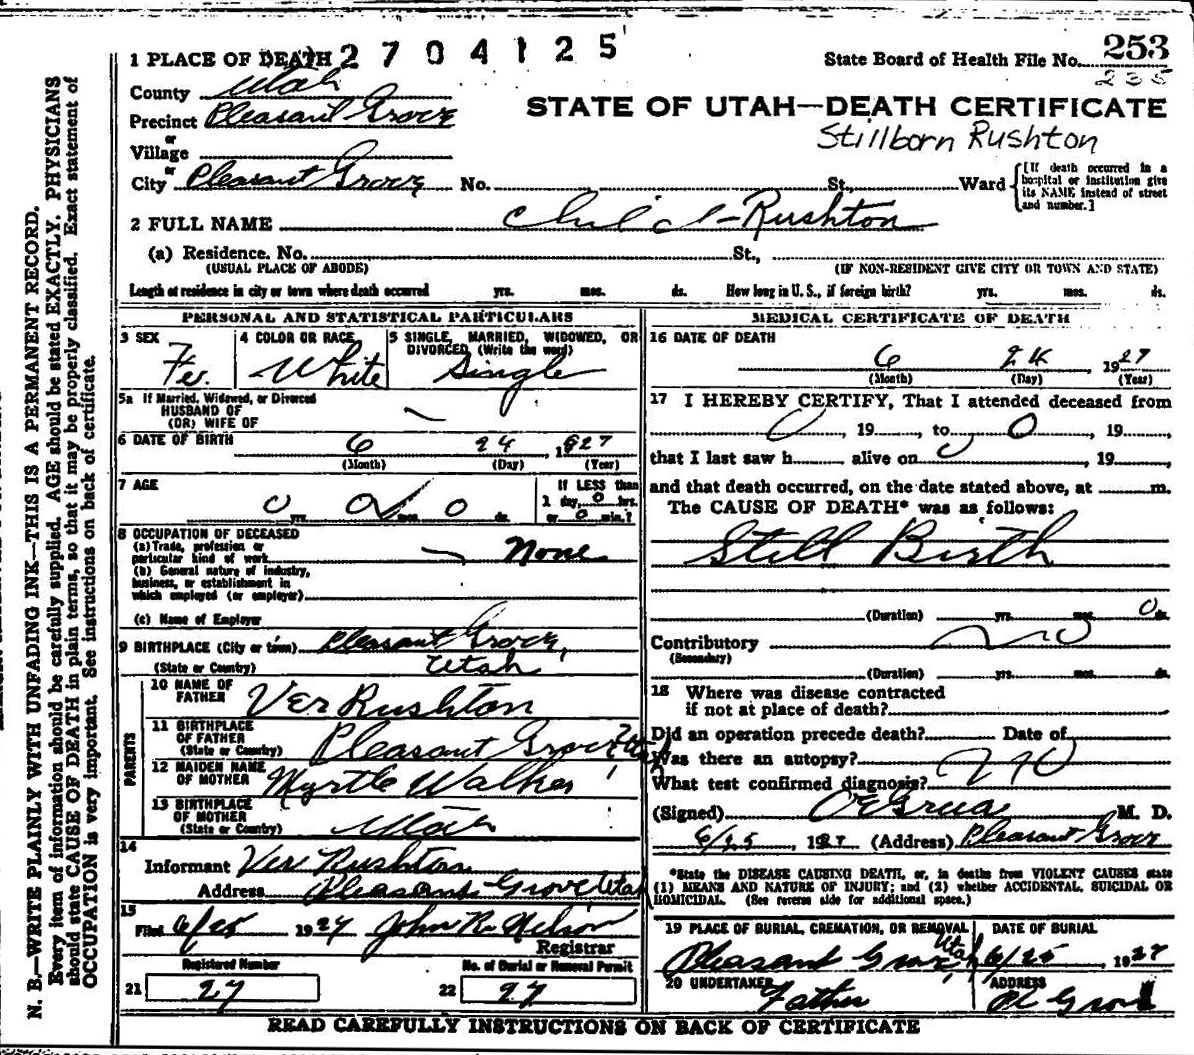 1 PLACE OF DEATH 2704125
State Board of Health File No. 253
235
County Utah
STATE OF UTAH—DEATH CERTIFICATE
Precinct Pleasant Grove
Stillborn Rushton
or
Village
or
City Pleasant Grove No. St., Ward
[If death occurred in a hospital or institution give its NAME instead of street and number.]
2 FULL NAME Child - Rushton
(a) Residence. No. St.,
(USUAL PLACE OF ABODE) (IF NON-RESIDENT GIVE CITY OR TOWN AND STATE)
Length of residence in city or town where death occurred yrs. mos. ds. How long in U. S., if foreign birth? yrs. mos. ds.
PERSONAL AND STATISTICAL PARTICULARS
3 SEX 4 COLOR OR RACE 5 SINGLE, MARRIED, WIDOWED, OR
DIVORCED (Write the word)
Fe. White Single
5a If Married, Widowed, or Divorced
HUSBAND OF
(OR) WIFE OF
6 DATE OF BIRTH 6 24 1927
(Month) (Day) (Year)
7 AGE If LESS than
0 yrs. 0 mos. 0 ds. 1 day, 0 hrs.
or 0 min.?
8 OCCUPATION OF DECEASED
(a) Trade, profession or
particular kind of work None
(b) General nature of industry,
business, or establishment in
which employed (or employer)
(c) Name of Employer
9 BIRTHPLACE (City or town) Pleasant Grove,
(State or Country) Utah
PARENTS
10 NAME OF
FATHER Ver Rushton
11 BIRTHPLACE
OF FATHER
(State or Country) Pleasant Grove Utah
12 MAIDEN NAME
OF MOTHER Myrtle Walker
13 BIRTHPLACE
OF MOTHER
(State or Country) Utah
14
Informant Ver Rushton
Address Pleasant Grove Utah
15
Filed 6/25 1927 John R. Nelson
Registrar
Registered Number No. of Burial or Removal Permit
21 27 22 27
MEDICAL CERTIFICATE OF DEATH
16 DATE OF DEATH
6 24 1927
(Month) (Day) (Year)
17 I HEREBY CERTIFY, That I attended deceased from
0, 19, to 0, 19,
that I last saw h alive on 0, 19,
and that death occurred, on the date stated above, at m.
The CAUSE OF DEATH* was as follows:
Still Birth
(Duration) yrs. mos. 0 ds.
Contributory no
(Secondary)
(Duration) yrs. mos. ds.
18 Where was disease contracted
if not at place of death?
Did an operation precede death? Date of
Was there an autopsy? no
What test confirmed diagnosis?
(Signed) O E Grua M. D.
6/25, 1927 (Address) Pleasant Grove
*State the DISEASE CAUSING DEATH, or, in deaths from VIOLENT CAUSES state
(1) MEANS AND NATURE OF INJURY; and (2) whether ACCIDENTAL, SUICIDAL OR
HOMICIDAL. (See reverse side for additional space.)
19 PLACE OF BURIAL, CREMATION, OR REMOVAL DATE OF BURIAL
Pleasant Grove Utah 6/25, 1927
20 UNDERTAKER ADDRESS
Father Pl Grove
READ CAREFULLY INSTRUCTIONS ON BACK OF CERTIFICATE
N. B.—WRITE PLAINLY WITH UNFADING INK—THIS IS A PERMANENT RECORD.
Every item of information should be carefully supplied. AGE should be stated EXACTLY. PHYSICIANS
should state CAUSE OF DEATH in plain terms, so that it may be properly classified. Exact statement of
OCCUPATION is very important. See instructions on back of certificate.